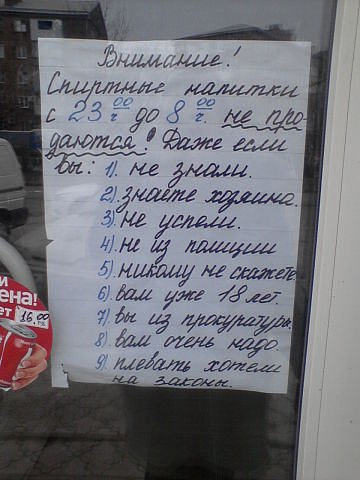 Внимание!
Спиртные напитки
с 23 00 ч. до 8 00 ч. не про-
даются! Даже если
Вы: 1). не знали.
2). знаете хозяина.
3). не успели.
4). не из полиции
5). никому не скажете.
6). вам уже 18 лет.
7). вы из прокуратуры.
8). вам очень надо.
9). плевать хотели
на законы.
ена!
ет 16 00